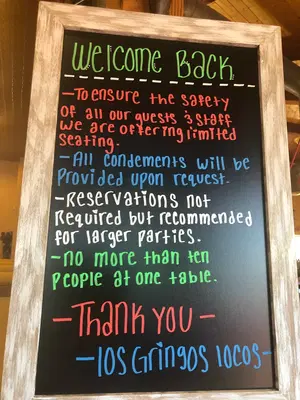 Welcome Back
-To ensure the safety
of all our guests & staff
we are offering limited
seating.
-All condements will be
Provided upon request.
-Reservations not
Required but recommended
for larger parties.
-no more than ten
people at one table.
-Thank you-
-los Gringos locos-